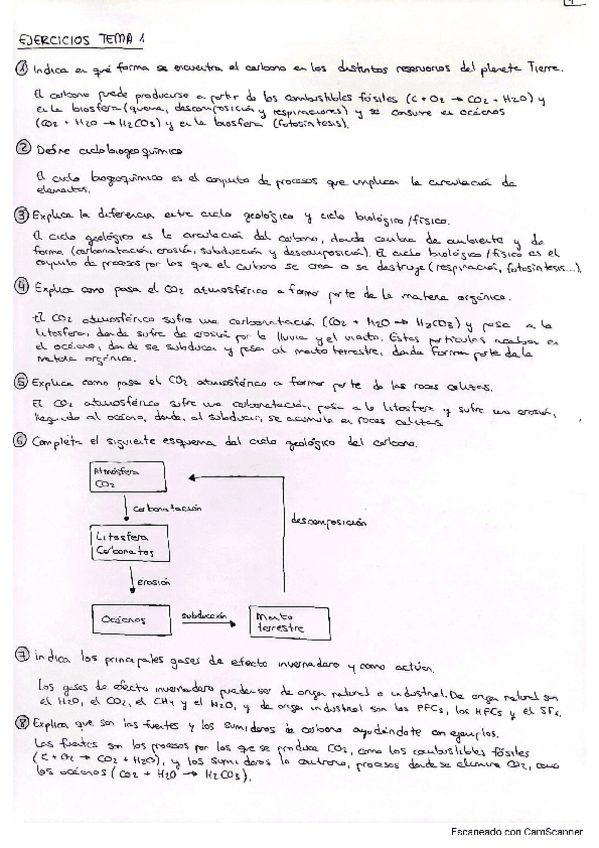 EJERCICIOS TEMA 1
① Indica en qué forma se encuentra el carbono en los distintos reservorios del planeta Tierra.
El carbono puede producirse a partir de los combustibles fósiles (C + O₂ → CO₂ + H₂O) y
en la biosfera (quema, descomposición y respiraciones) y se consume en océanos
(CO₂ + H₂O → H₂CO₃) y en la biosfera (fotosíntesis).
② Define ciclo biogeoquímico
El ciclo biogeoquímico es el conjunto de procesos que implican la circulación de
elementos.
③ Explica la diferencia entre ciclo geológico y ciclo biológico/físico.
El ciclo geológico es la circulación del carbono, donde cambia de ambiente y de
forma (carbonatación, erosión, subducción y descomposición). El ciclo biológico/físico es el
conjunto de procesos por los que el carbono se crea o se destruye (respiración, fotosíntesis...).
④ Explica como pasa el CO₂ atmosférico a formar parte de la materia orgánica.
El CO₂ atmosférico sufre una carbonatación (CO₂ + H₂O → H₂CO₃) y pasa a la
litosfera, donde sufre de erosión por la lluvia y el viento. Estas partículas acaban en
el océano, donde se subducen y pasan al manto terrestre, donde forman parte de la
materia orgánica.
⑤ Explica como pasa el CO₂ atmosférico a formar parte de las rocas calizas.
El CO₂ atmosférico sufre una carbonatación, pasa a la litosfera y sufre una erosión,
llegando al océano, donde, al subducir, se acumula en rocas calizas
⑥ Completa el siguiente esquema del ciclo geológico del carbono.
Atmósfera
CO₂
carbonatación
descomposición
Litosfera
Carbonatos
erosión
Océanos
subducción
Manto
terrestre
⑦ Indica los principales gases de efecto invernadero y como actúan.
Los gases de efecto invernadero pueden ser de origen natural o industrial. De origen natural son
el H₂O, el CO₂, el CH₄ y el N₂O, y de origen industrial son los PFCs, los HFCs y el SF₆.
⑧ Explica que son las fuentes y los sumideros de carbono ayudándote con ejemplos.
Las fuentes son los procesos por los que se produce CO₂, como los combustibles fósiles
(C + O₂ → CO₂ + H₂O), y los sumideros lo contrario, procesos donde se elimina CO₂, como
los océanos (CO₂ + H₂O → H₂CO₃).
Escaneado con CamScanner